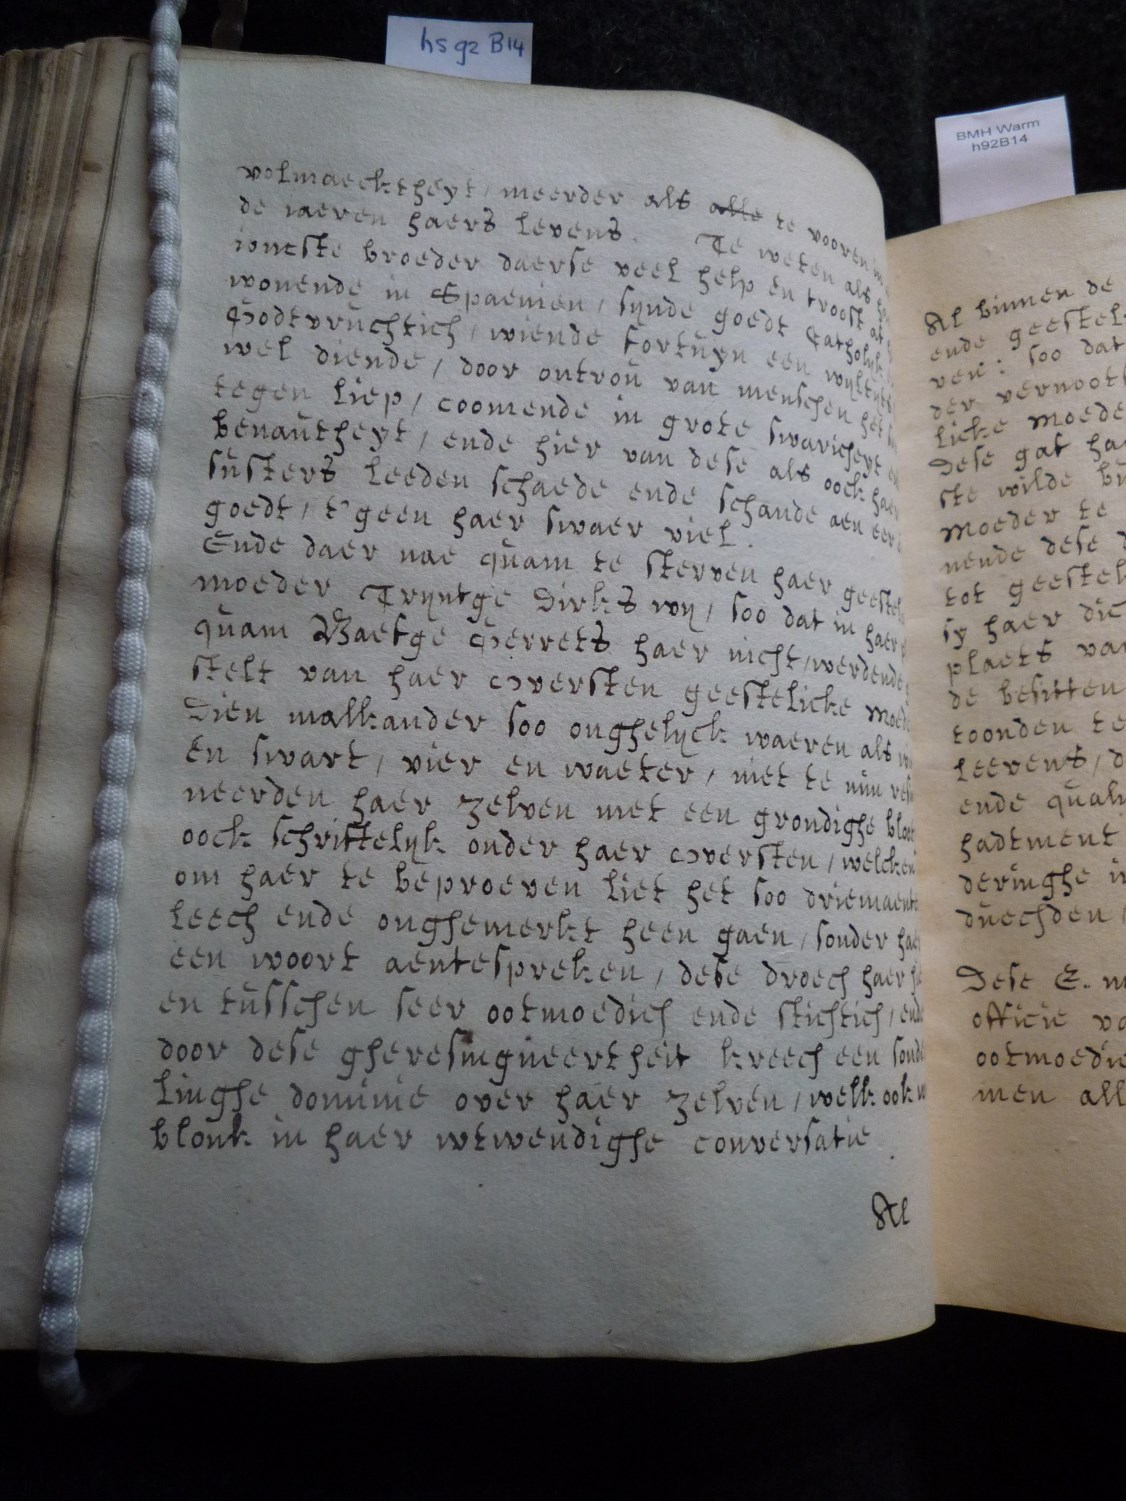 hs 92 B14
BMH Warm
h92B14
volmaecktheyt, meerder als alle te vooren in
de iaeren haers levens. Te weten als
ioncste broeder daerse veel help en troost
wonende in Spaenien, synde goedt Catholyk
Godtvruchtich, wiende fortuyn een wyltyts
wel diende, door ontrou van menschen het
tegen liep, coomende in grote swaricheyt
benautheyt, ende hier van dese als oock haer
susters leeden schaede ende schande aen eer
goedt, t'geen haer swaer viel.
Ende daer nae quam te sterven haer geestel
moeder Tryntge Dirks wy, soo dat in haer
quam Baefge Gerrets haer nicht, werdende
stelt van haer oversten geestelicke moed
Dien malkander soo onghelyck waeren als
en swart, vier en waeter, niet te min
neerden haer zelven met een grondighe
oock schriftelyk onder haer oversten, welcken
om haer te beproeven liet het soo driemaent
leech ende onghemerkt heen gaen, sonder haer
een woort aentespreken, dese droech haer
en tusschen seer ootmoedich ende stichtich, ende
door dese gheresingneertheit kreech een sonde
linghe dominie over haer zelven, welk ook
blonk in haer wtwendighe conversatie.
Al
Al binnen de
ende geestel
ven: soo dat
der vernooth
licke moede
Dese gaf ha
ste wilde
Moeder te
nende dese
tot geestel
sy haer die
plaets va
de besitten
toonden te
leevens, d
ende quali
hadtment
deringhe i
duechden,
Dese E. m
officie va
ootmoedi
men all